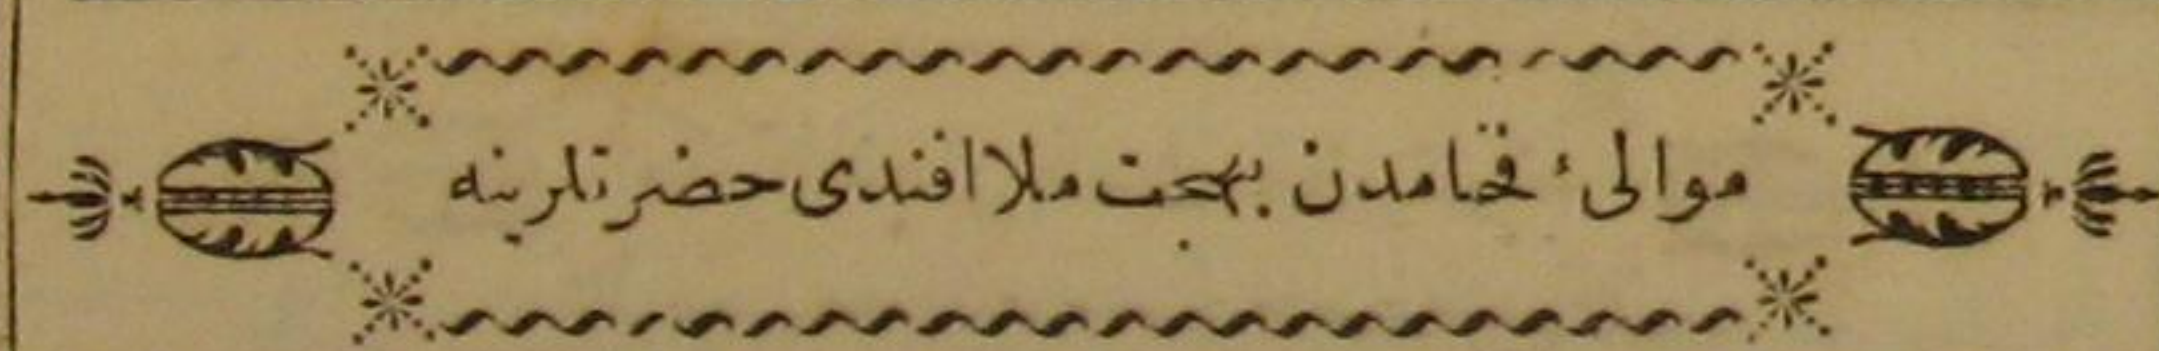 موالیٔ فخامدن بهجت ملا افندی حضرتلرینه